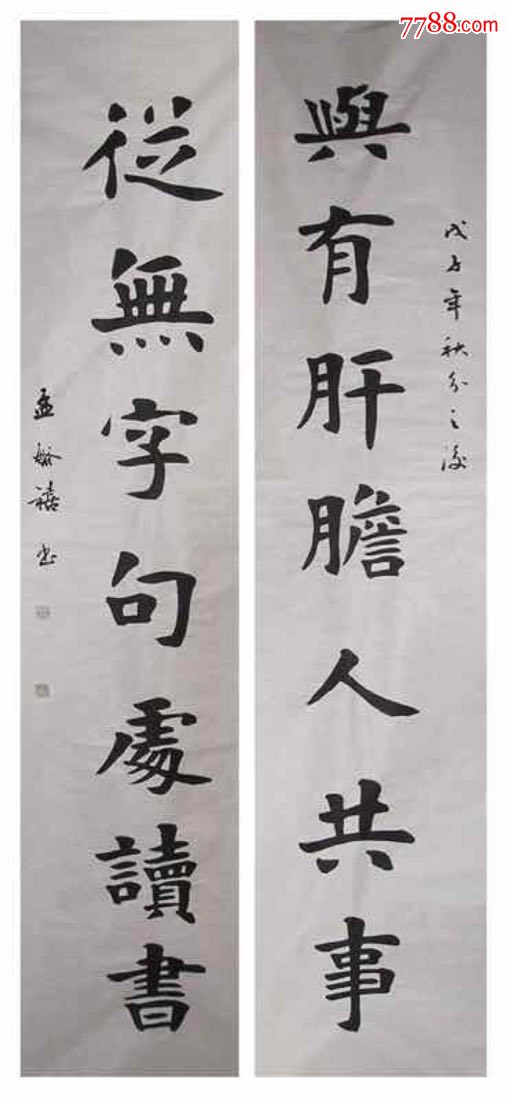 7788.com
戊子年秋分之後
與有肝膽人共事
從無字句處讀書
孟
禧書